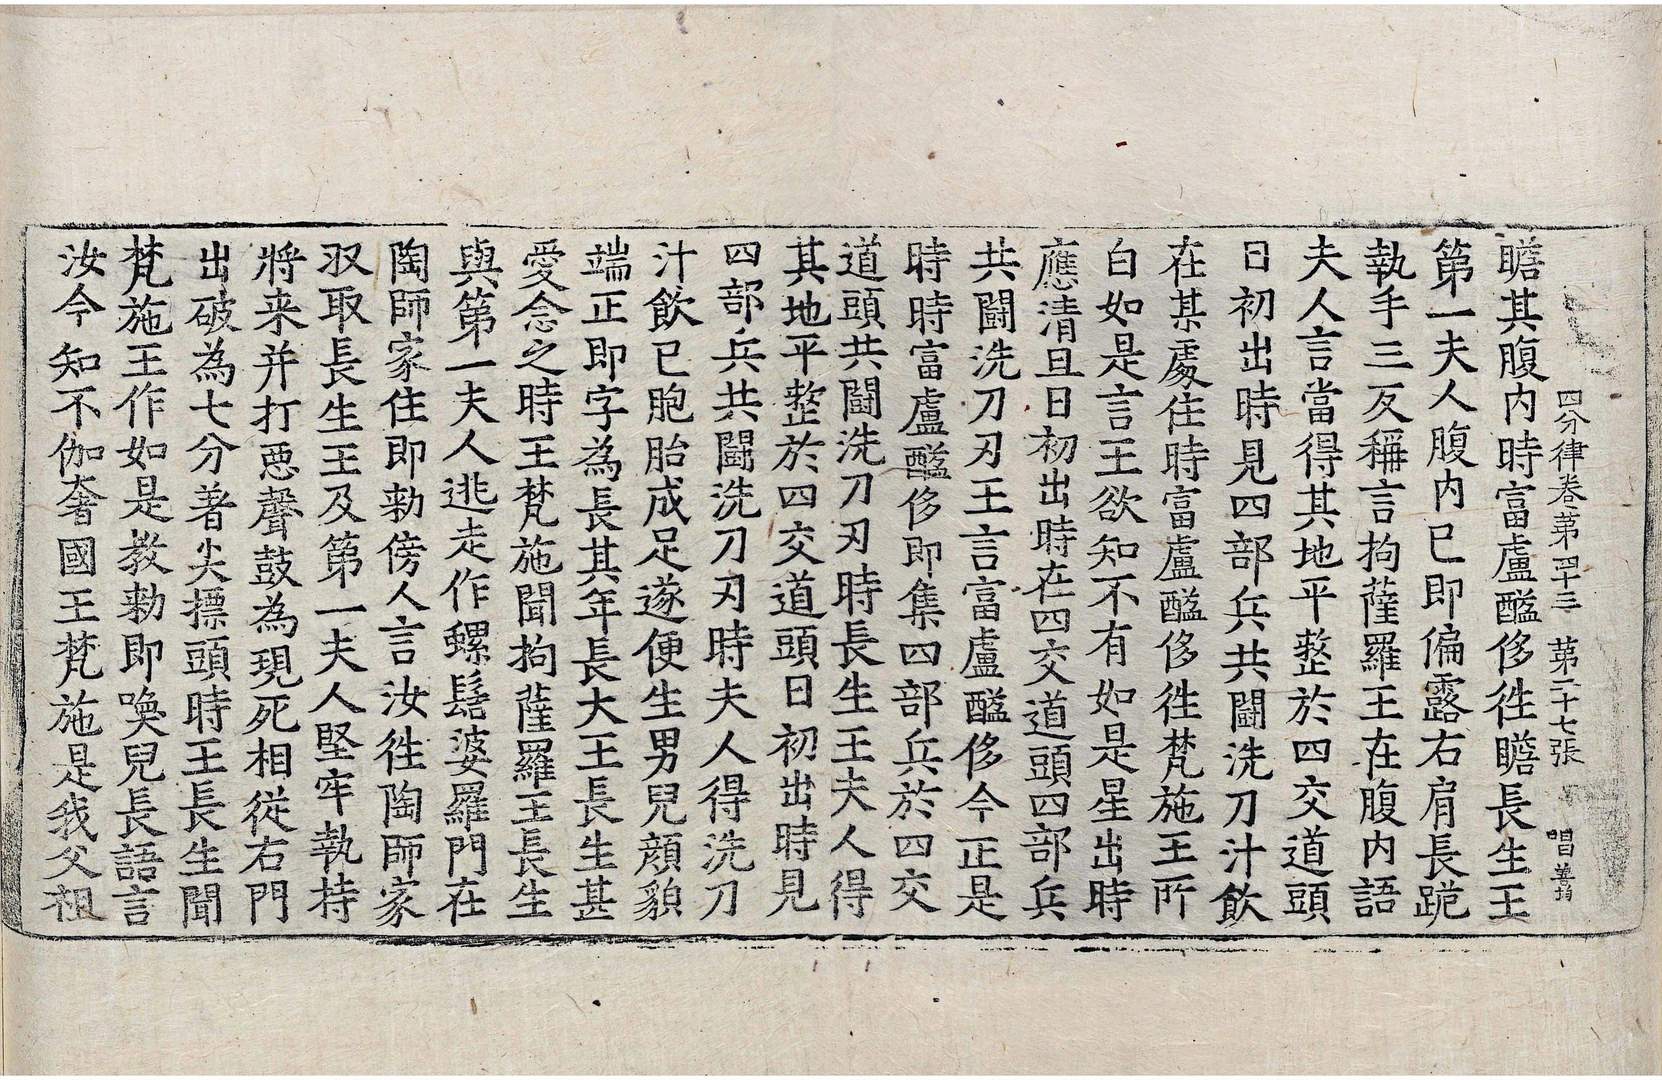 四分律卷第四十三 第二十七張 唱
瞻其腹內時富盧醯侈徃瞻長生王
第一夫人腹內已即偏露右肩長跪
執手三反稱言拘薩羅王在腹內語
夫人言當得其地平整於四交道頭
日初出時見四部兵共鬪洗刀汁飲
在某處住時富盧醯侈徃梵施王所
白如是言王欲知不有如是星出時
應清旦日初出時在四交道頭四部兵
共鬪洗刀刃王言富盧醯侈今正是
時時富盧醯侈即集四部兵於四交
道頭共鬪洗刀刃時長生王夫人得
其地平整於四交道頭日初出時見
四部兵共鬪洗刀刃時夫人得洗刀
汁飲已胞胎成足遂便生男兒顔貌
端正即字為長其年長大王長生甚
愛念之時王梵施聞拘薩羅王長生
與第一夫人逃走作螺髻婆羅門在
陶師家住即勑傍人言汝徃陶師家
収取長生王及第一夫人堅牢執持
將来并打惡聲鼓為現死相從右門
出破為七分著尖摽頭時王長生聞
梵施王作如是教勑即喚兒長語言
汝今知不伽奢國王梵施是我父祖